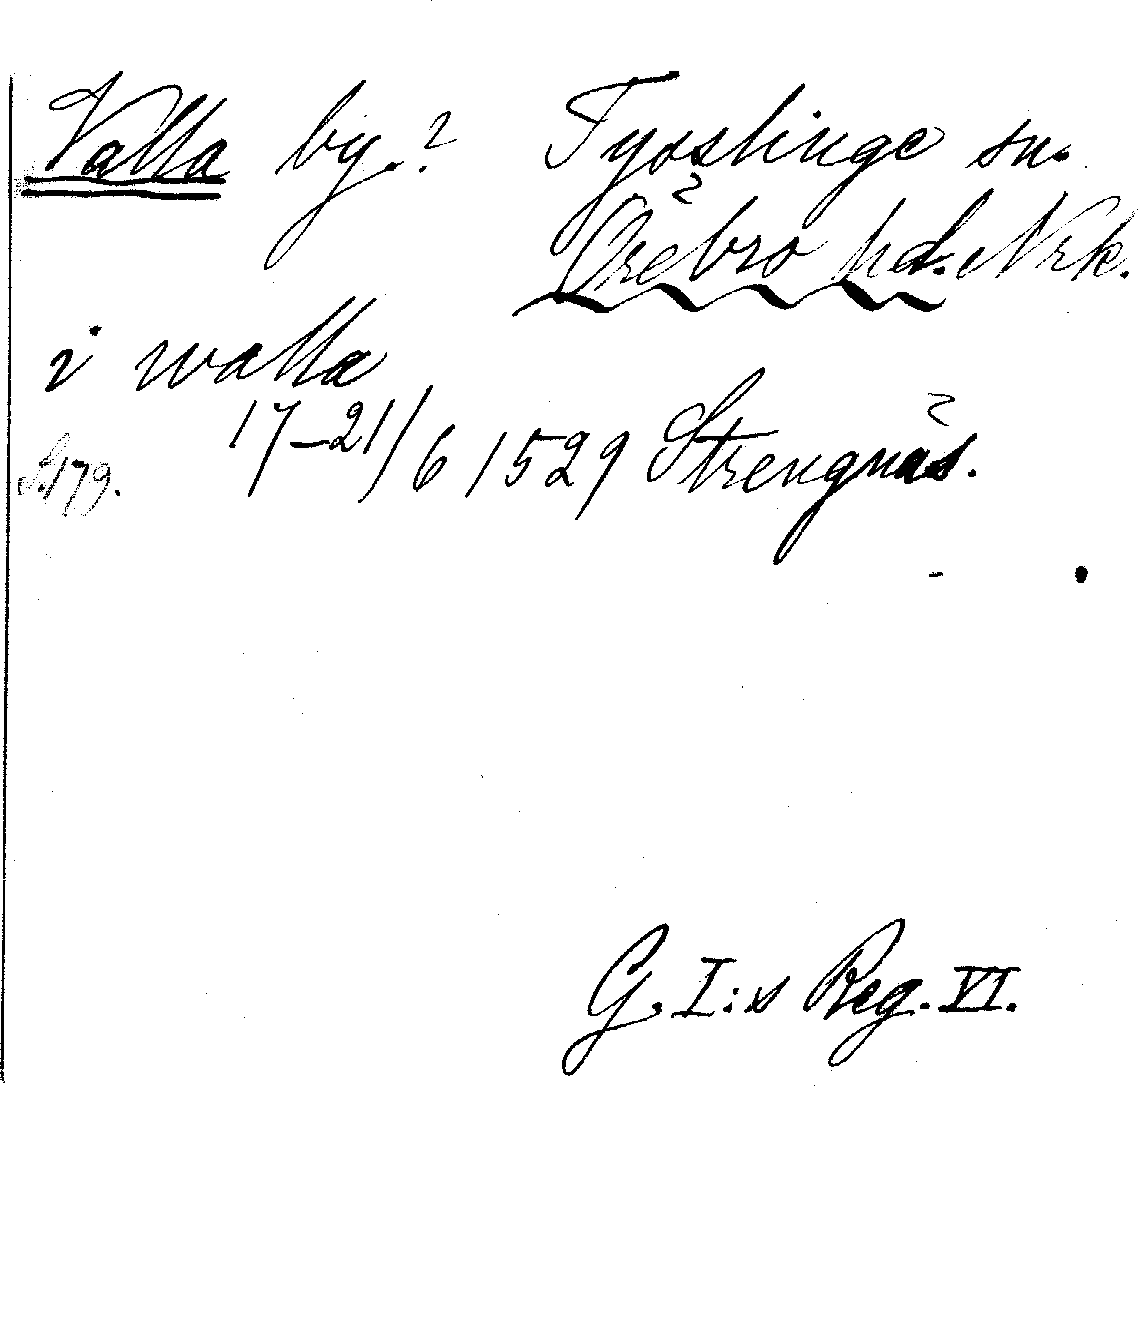 Valla by.? Tysslinge sn.
Örebro hd. Nrk.
i walla
17–21/6 1529 Strengnäs.
S. 179.
G. I:s Reg. VI.